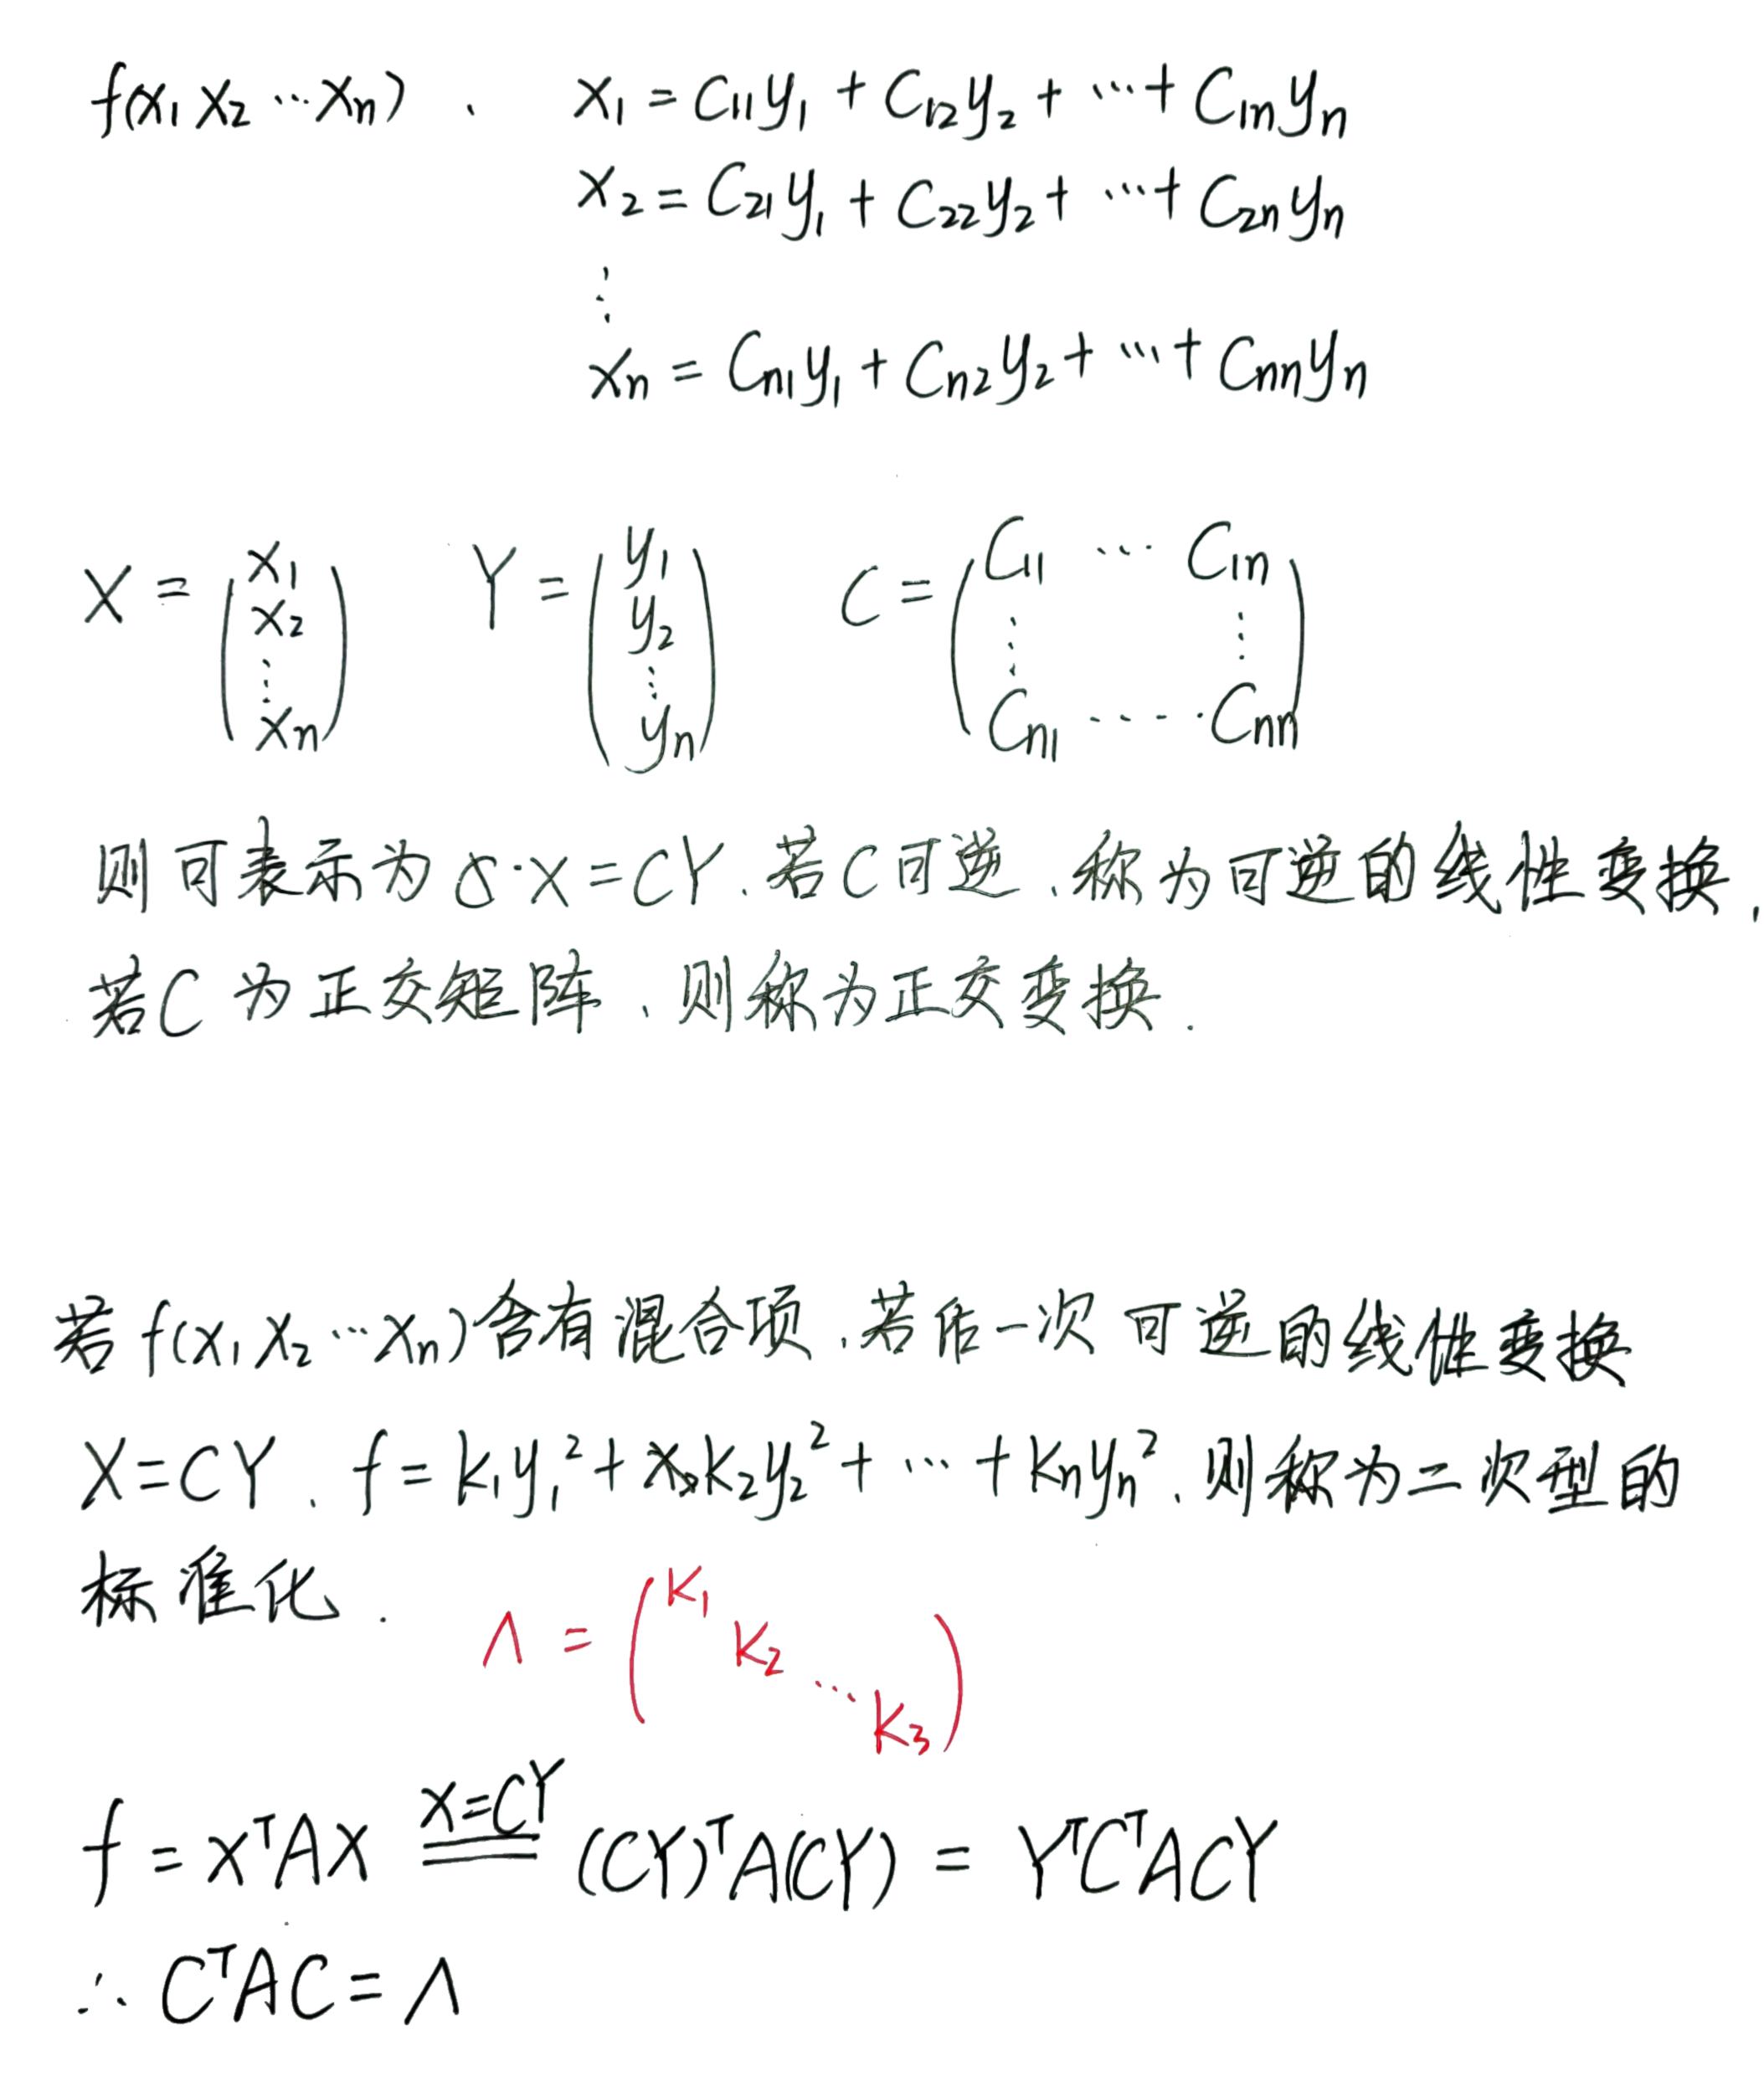 f(x₁ x₂ ⋯ xₙ) 、 x₁ = C₁₁y₁ + C₁₂y₂ + ⋯ + C₁ₙyₙ
x₂ = C₂₁y₁ + C₂₂y₂ + ⋯ + C₂ₙyₙ
⋮
xₙ = Cₙ₁y₁ + Cₙ₂y₂ + ⋯ + Cₙₙyₙ
X = (x₁ x₂ ⋮ xₙ) Y = (y₁ y₂ ⋮ yₙ) C = (C₁₁ ⋯ C₁ₙ ⋮ ⋮ Cₙ₁ ⋯ Cₙₙ)
则可表示为 δ·X=CY. 若C可逆、称为可逆的线性变换,
若C 为正交矩阵、则称为正交变换.
若 f(x₁ x₂ ⋯ xₙ) 含有混合项、若作一次可逆的线性变换
X=CY 、 f = k₁y₁² + k₂y₂² + ⋯ + kₙyₙ²、则称为二次型的
标准化.
Λ = (K₁ K₂ ⋯ K₃)
X=CY
f = XᵀAX == (CY)ᵀA(CY) = YᵀCᵀACY
∴ CᵀAC = Λ